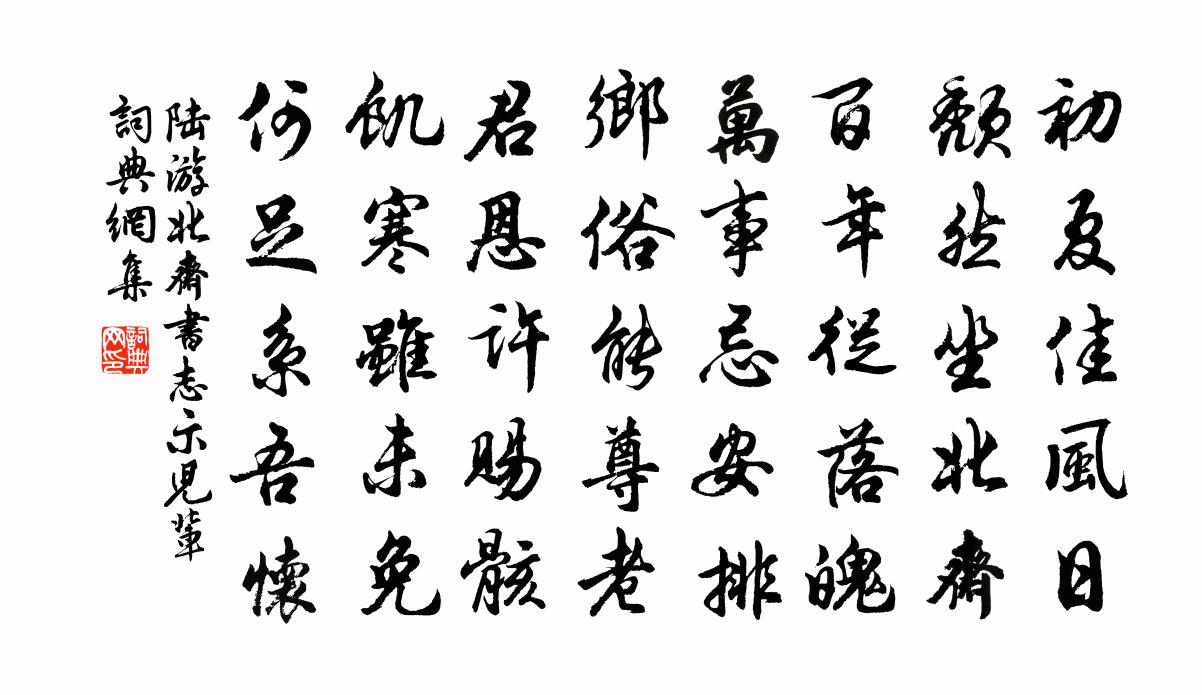 初夏佳風日
頹然坐北齋
百年從落魄
萬事忌安排
鄉俗能尊老
君恩許賜骸
飢寒雖未免
何足系吾懷
陸游北齋書志示兒輩
詞典網集
詞典网印